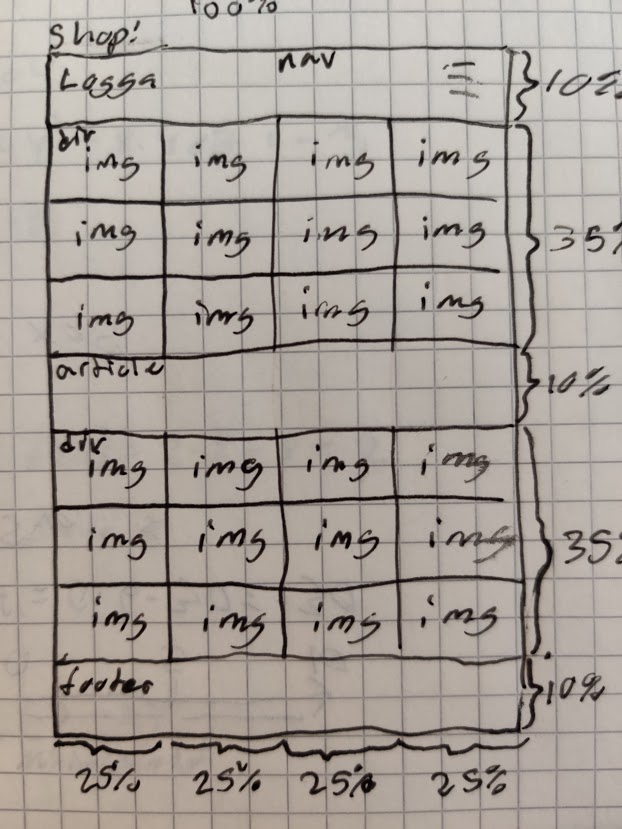 100%
Shop!
nav
Logga
10%
div
img img img img
img img img img
35%
img img img img
article
10%
div
img img img img
img img img img
35%
img img img img
footer
10%
25% 25% 25% 25%